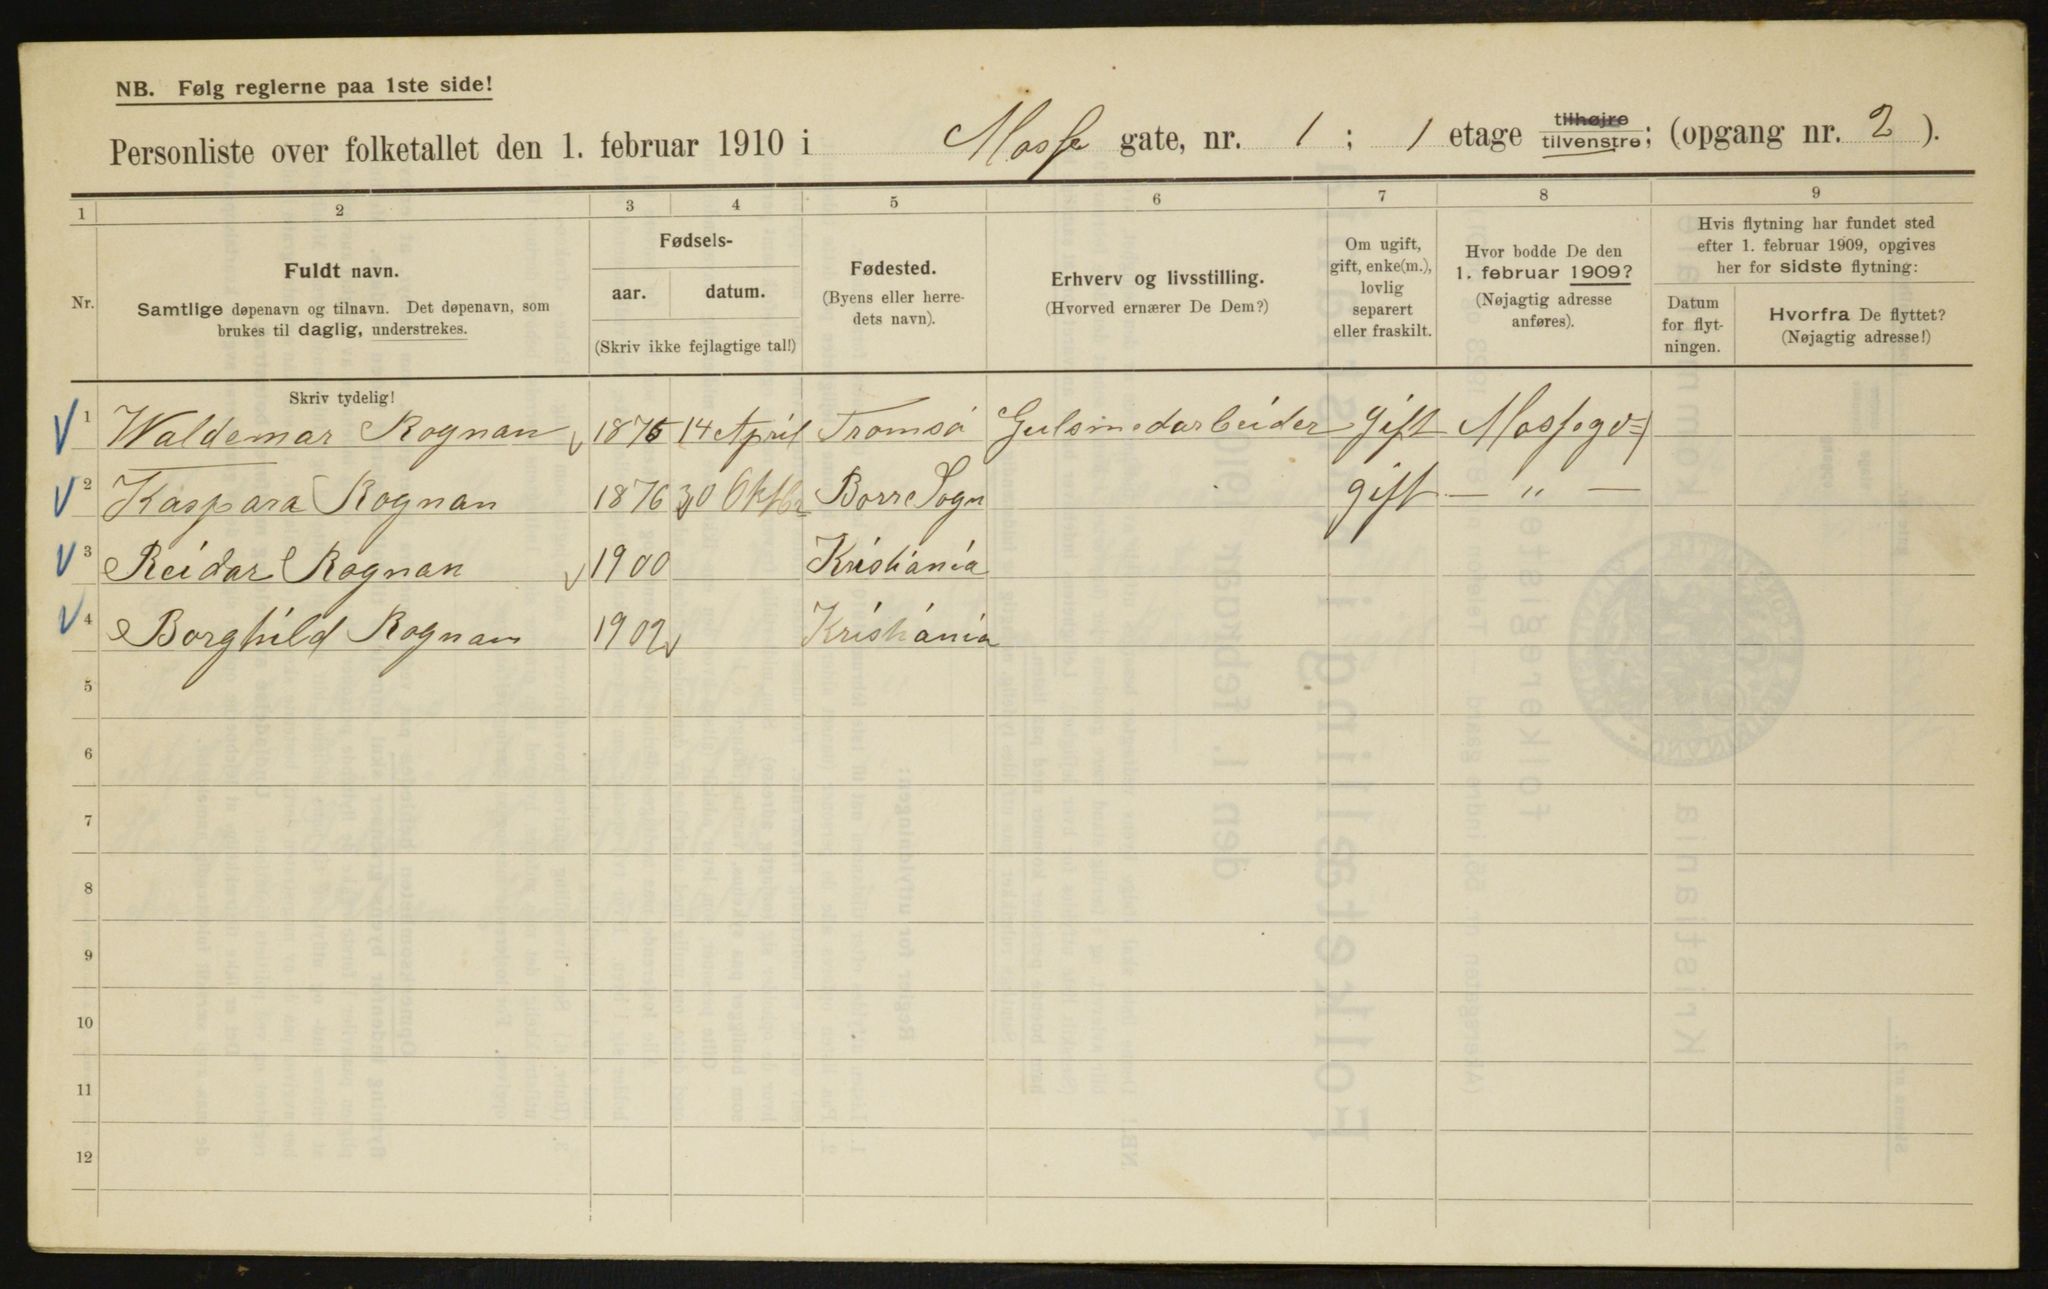 NB. Følg reglerne paa 1ste side!
Personliste over folketallet den 1. februar 1910 i Mosse gate, nr. 1 ; 1 etage tilhøjre tilvenstre; (opgang nr. 2 ).
1 2 3 4 5 6 7 8 9
Nr.
Fuldt navn.
Samtlige døpenavn og tilnavn. Det døpenavn, som
brukes til daglig, understrekes.
Fødsels-
aar. datum.
(Skriv ikke fejlagtige tal!)
Fødested.
(Byens eller herre-
dets navn).
Erhverv og livsstilling.
(Hvorved ernærer De Dem?)
Om ugift,
gift, enke(m.),
lovlig
separert
eller fraskilt.
Hvor bodde De den
1. februar 1909?
(Nøjagtig adresse
anføres).
Hvis flytning har fundet sted
efter 1. februar 1909, opgives
her for sidste flytning:
Datum
for flyt-
ningen.
Hvorfra De flyttet?
(Nøjagtig adresse!)
Skriv tydelig!
1 Waldemar Rognan 1875 14 April Tromsö Gulsmedarbeider gift Mossegd 1
2 Kaspara Rognan 1876 30 Oktbr Borre Sogn gift — " —
3 Reidar Rognan 1900 Kristiania
4 Borghild Rognan 1902 Kristiania
5
6
7
8
9
10
11
12